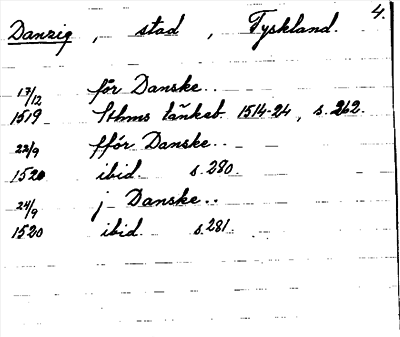 4.
Danzig, stad, Tyskland.
17/12 för Danske..
1519 Sthms tänkeb. 1514-24, s. 262.
22/9 fför Danske..
1520 ibid. s. 280.
24/9 j Danske..
1520 ibid. s. 281.